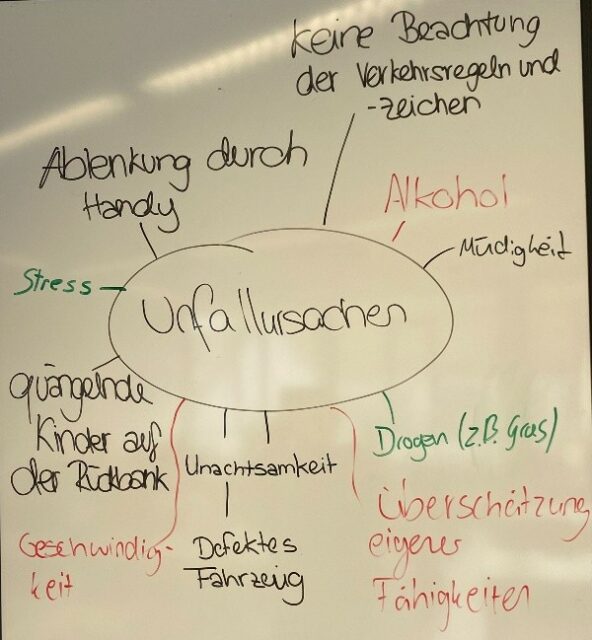 keine Beachtung
der Verkehrsregeln und
-zeichen
Ablenkung durch
Handy
Alkohol
Müdigkeit
Stress
Unfallursachen
quängelnde
Kinder auf
der Rückbank
Unachtsamkeit
Drogen (z.B. Gras)
Geschwindig-
keit
Defektes
Fahrzeug
Überschätzung
eigener
Fähigkeiten